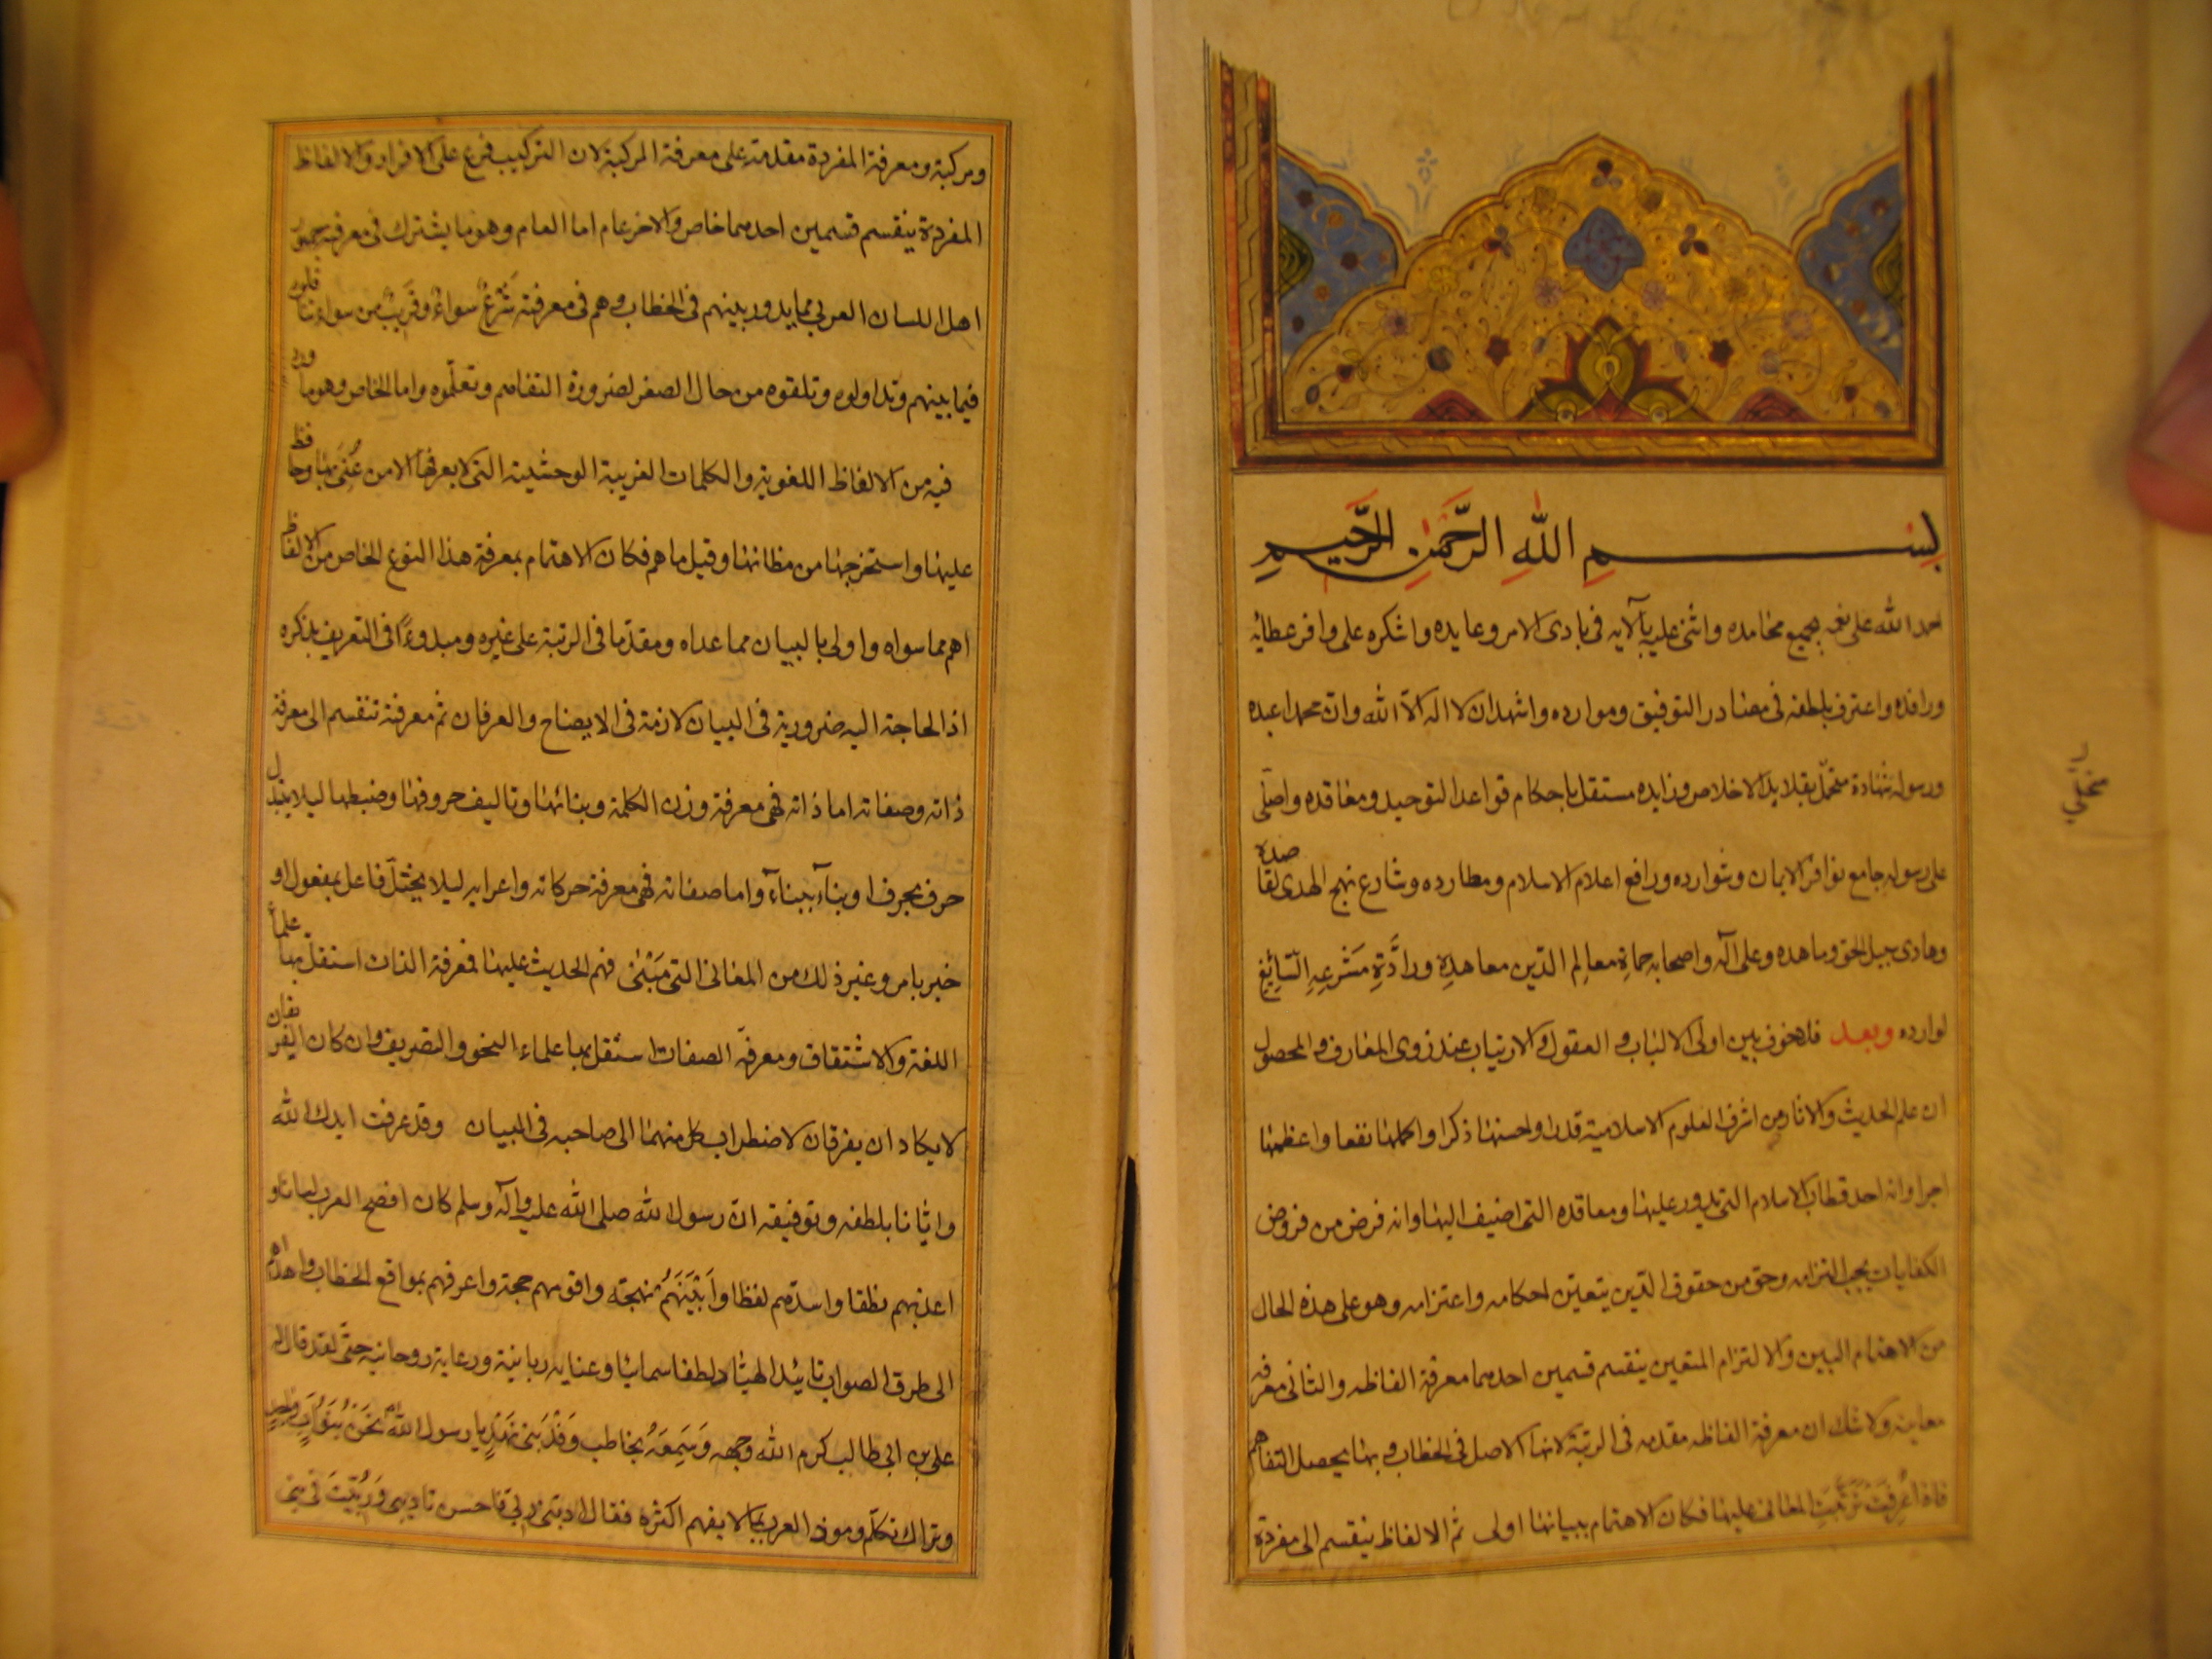 بِسْمِ اللهِ الرَّحْمٰنِ الرَّحِيمِ
احمد الله على نعمه بجميع محامده واثنى عليه بآلايه فى بادى الامر وعايده واشكره على وافر عطائه
ورافده واعترف بلطفه فى مصادر التوفيق وموارده واشهد ان لا اله الّا الله وان محمدا عبده
ورسوله شهادة متحلّ بقلايد الاخلاص وفرايده مستقل باحكام قواعد التوحيد ومعاقده واصلّى
على رسوله جامع نوافر الايمان وشوارده ورافع اعلام الاسلام ومطارده وشارع نهج الهدى لقاصده
وهادى سبيل الحق وماهده وعلى آله واصحابه حماةِ معالِمِ الدّين معاهدِهِ ورادَّةِ مَشْرعِهِ السّائِغِ
لوارده وبعد فلا خوف بين اولى الالباب والعقول ولا ارتياب عند ذوى المعارف والمحصول
ان علم الحديث والاثار من اشرف العلوم الاسلامية قدرا واحسنها ذكرا واكملها نفعا واعظمها
اجرا وانه احد قطاب الاسلام التى يدور عليها ومعاقده التى اضيف اليها وانه فرض من فروض
الكفايات يجب التزامه وحق من حقوق الدّين يتعين احكامه واعتزامه وهو على هذه الحال
من الاهتمام البين والالتزام المتعين ينقسم قسمين احدهما معرفة الفاظه والثانى معرفة
معانيه ولا شك ان معرفة الفاظه مقدمه فى الرتبة لانها الاصل فى الخطاب وبها يحصل التفاهم
فاذا عُرِفَتْ تَرَتّبَتِ المعانى عليها فكان الاهتمام ببيانها اولى ثم الالفاظ ينقسم الى مفردة
ومركبة ومعرفة المفردة مقدمة على معرفة المركبة لان التركيب فرع على الافراد والالفاظ
المفردة ينقسم قسمين احدهما خاص والاخر عام اما العام وهو ما يشترك فى معرفته جمهور
اهل اللسان العربى مما يدور بينهم فى الخطاب وهم فى معرفته شَرْعٌ سواءٌ وقَريبٌ من سواء تناقلوه
فيما بينهم وتداولوه وتلقوه من حال الصغر لضرورة التفاهم وتعلّموه واما الخاص وهو ما ورد
فيه من الالفاظ اللغوية والكلمات الغريبة الوحشية التى لا يعرفها الا من عُنِىَ بها وحافظ
عليها واستخرجها من مظانها وقيل ما هم فكان الاهتمام بمعرفة هذا النوع الخاص من الالفاظ
اهم مما سواه واولى بالبيان مما عداه ومقدّما فى الرتبة على غيره ومبدوءًا فى التعريف بذكره
اذ الحاجة اليه ضرورية فى البيان لازمة فى الايضاح والعرفان ثم معرفته تنقسم الى معرفة
ذاته وصفاته اما ذاته فهى معرفة وزن الكلمة وبنائها وتاليف حروفها وضبطها ليلا يتبدل
حرف بحرف او بناء ببناء واما صفاته فهى معرفة حركاته واعرابه ليلا يختلّ فاعل بمفعول او
خبر بامر وغير ذلك من المعانى التى مَبْنىٰ فهم الحديث عليها فمعرفة الذات استقلّ بها علماءُ
اللغة والاشتقاق ومعرفة الصفات استقل بها علماء النحو والتصريف وان كان الفريقان
لا يكادان يفرقان لاضطراب كل منهما الى صاحبه فى البيان وقد عرفت ايدك الله
وايّانا بلطفه وتوفيقه انّ رسول الله صلى الله عليه وآله وسلم كان افصح العرب لسانا و
اعذبهم نطقا واسدّهم لفظا وأَبْيَنَهُم لهجة واقومهم حجة واعرفهم بمواقع الخطاب واهداهم
الى طرق الصواب تائيدا الهيّا ولطفا سمائيا وعناية ربانية ورعاية روحانية حتّى لقد قال له
على بن ابى طالب كرم الله وجهه وَسَمِعَهُ يخاطب وَفْدَ بَنى نَهْدٍ يا رسول الله نَحْنُ بَنُو اَبٍ واحدٍ
ونراك تكلّم وفود العرب بما لا يفهم اكثره فقال ادبنى ربى فاحسن تاديبى وَرُبِّيتُ فى بنى